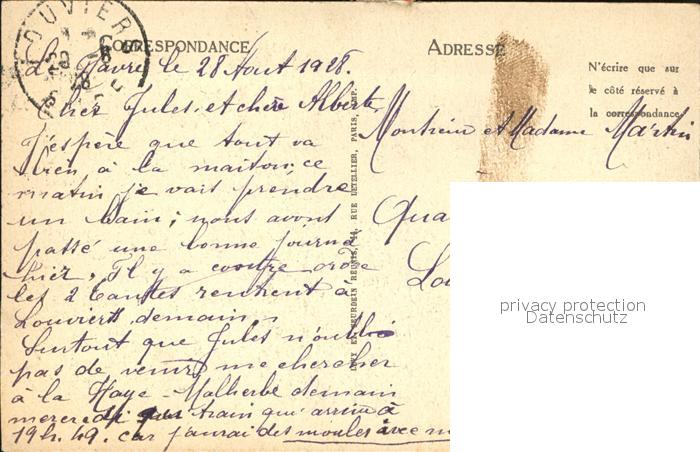 LOUVIERS
CORRESPONDANCE
ADRESSE
N'écrire que sur
le côté réservé à
la correspondance
Le Havre le 28 Aout 1928.
Cher Jules et chère Alberte,
Monsieur et Madame Martin
J'espère que tout va
bien à la maison, ce
matin je vais prendre
un bain; nous avons
passé une bonne journé
hier. Il y a contre ordre
les 2 tantes rentrent à
Louviers demain,
Surtout que Jules n'oublie
pas de venir me chercher
à la Haye-Malherbe demain
mercredi train qui arrive à
19h.49. car j'aurai des moules avec m
Qua
Lo
LEVY ET NEURDEIN REUNIS, 44, RUE LETELLIER, PARIS, IMP.
privacy protection
Datenschutz